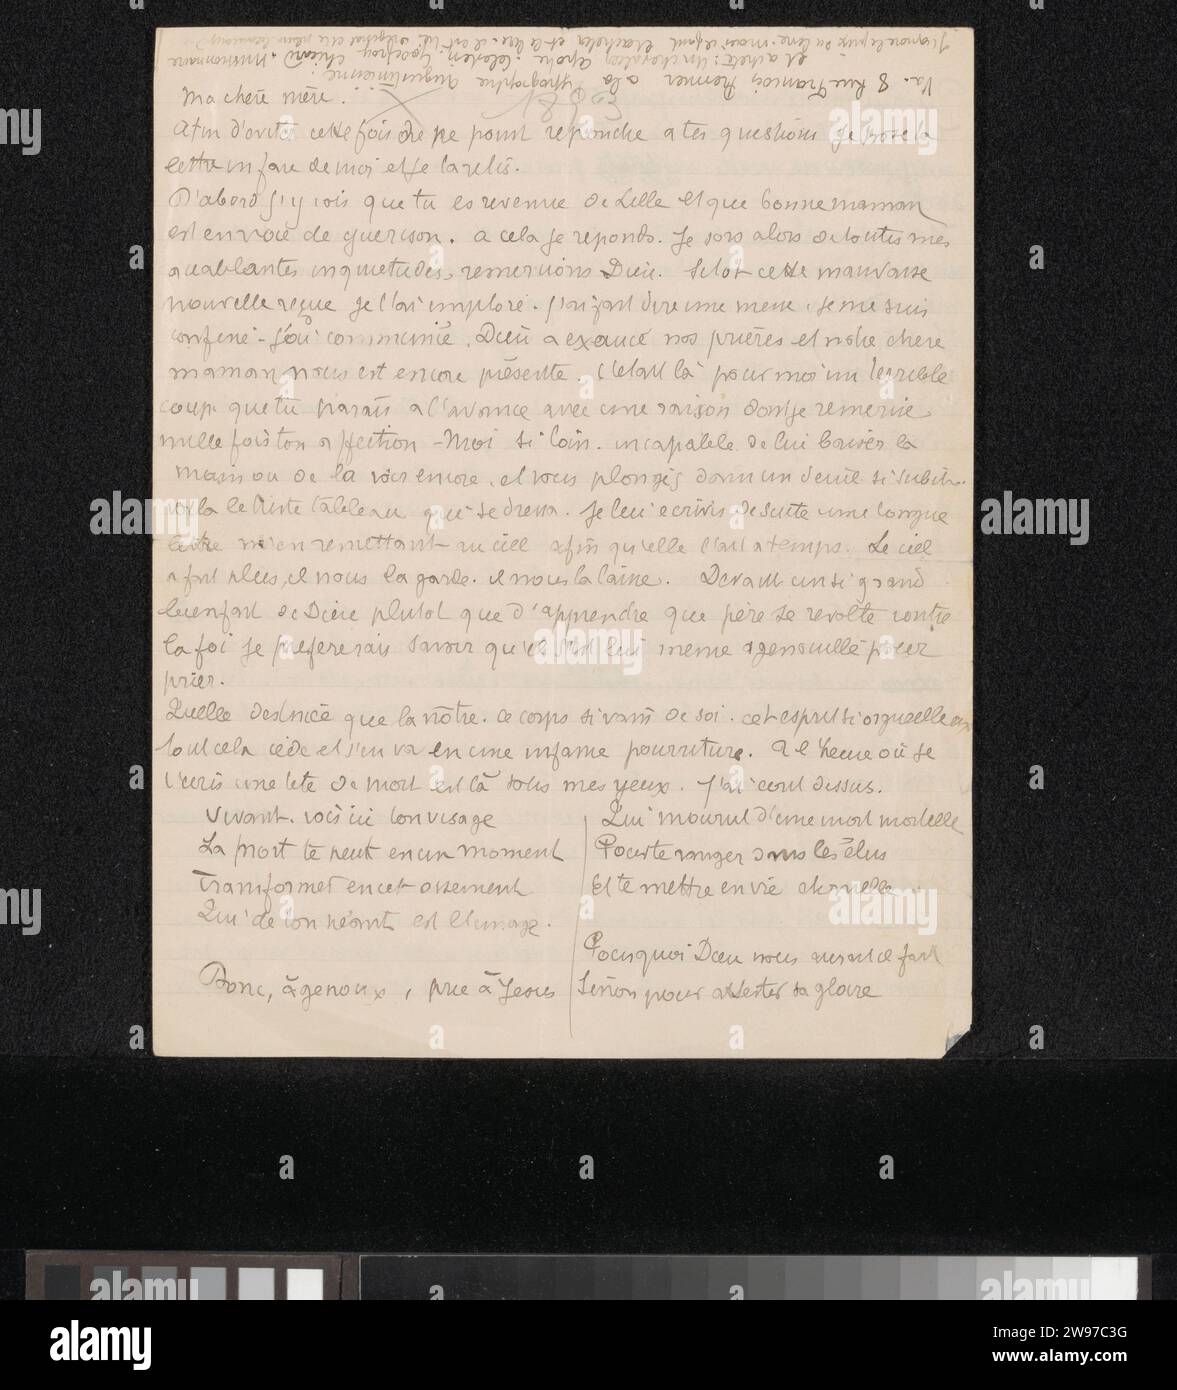 Ma chère mère.
Afin d'eviter cette fois de ne point repondre a tes questions je pose ta
lettre en face de moi et je la relis.
D'abord j'y vois que tu es revenue de Lille et que bonne maman
est en voie de guerison. a cela je reponds. Je sors alors de toutes mes
accablantes inquietudes, remercions Dieu. Sitot cette mauvaise
nouvelle reçue je l'ai imploré. j'ai fait dire une messe. je me suis
confessé - j'ai communié. Dieu a exaucé nos prières et notre chere
maman nous est encore présente. C'etait là pour moi un terrible
coup que tu parais a l'avance avec une raison dont je remercie
mille fois ton affection - Moi si loin. incapable de lui baiser la
main ou de la voir encore, et vous plongés dans un deuil si subit.
voila le triste tableau qui se dressa. Je lui ecrivis de suite une longue
lettre m'en remettant au ciel afin qu'elle l'ait a temps. Le ciel
a fait plus, il nous la garde. il nous la laisse. Devant un si grand
bienfait de Dieu plutot que d'apprendre que père se revolte contre
la foi je prefererais savoir qu'il s'est lui meme agenouillé pour
prier.
Quelle destinée que la nôtre. ce corps si vain de soi. cet esprit si orgueilleux
tout cela cède et s'en va en une infame pourriture. A l'heure où je
t'ecris une tete de mort est là sous mes yeux. j'ai ecrit dessus.
Vivant. voici ton visage
La mort te peut en un moment
Transformer en cet ossement
Qui de ton néant est l'image.
Donc, à genoux, prie à Jesus
Qui mourut d'une mort mortelle
Pour te ranger dans les élus
Et te mettre en vie eternelle
Pourquoi Dieu nous aurait il fait
Sinon pour attester sa gloire
Va. 8 Rue François Premier a la typographie Augustinienne
alamy
Image ID: 2W97C3G
www.alamy.com